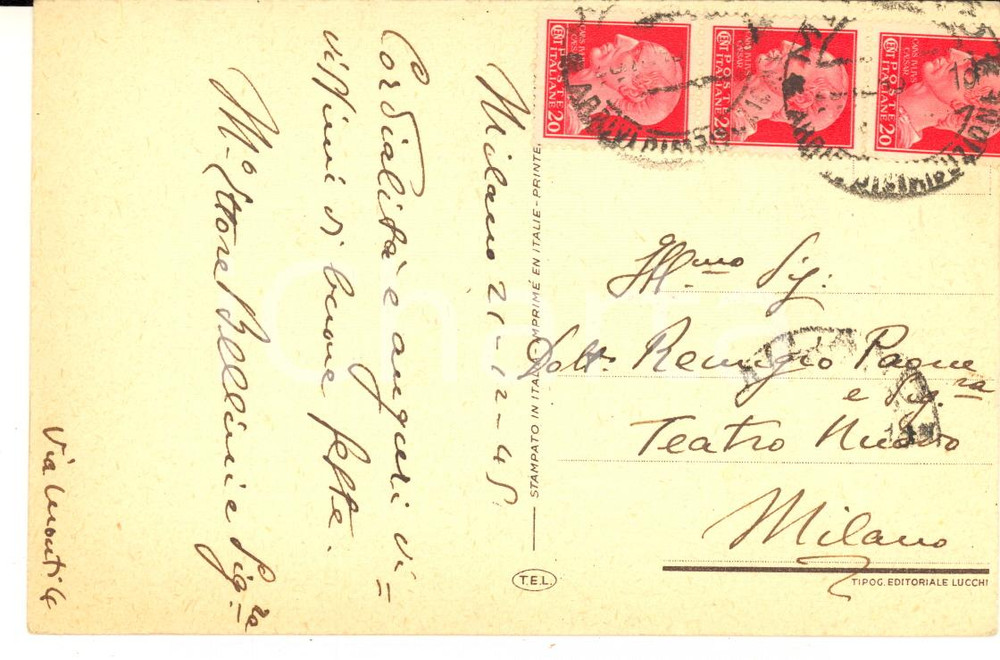 Milano 21-12-45
Cordialità e auguri vi=
vissimi di buone feste.
M.o Ettore Bellini e Sig.ra
Via Monti 4
STAMPATO IN ITALIA - IMPRIMÉ EN ITALIE - PRINTE
T.E.L.
POSTE ITALIANE
CENT 20
POSTE ITALIANE
CENT 20
POSTE ITALIANE
CENT 20
Ill.mo Sig.
Dott. Remigio Paone
e Sig.ra
Teatro Nuovo
Milano
TIPOG. EDITORIALE LUCCHI
Charta